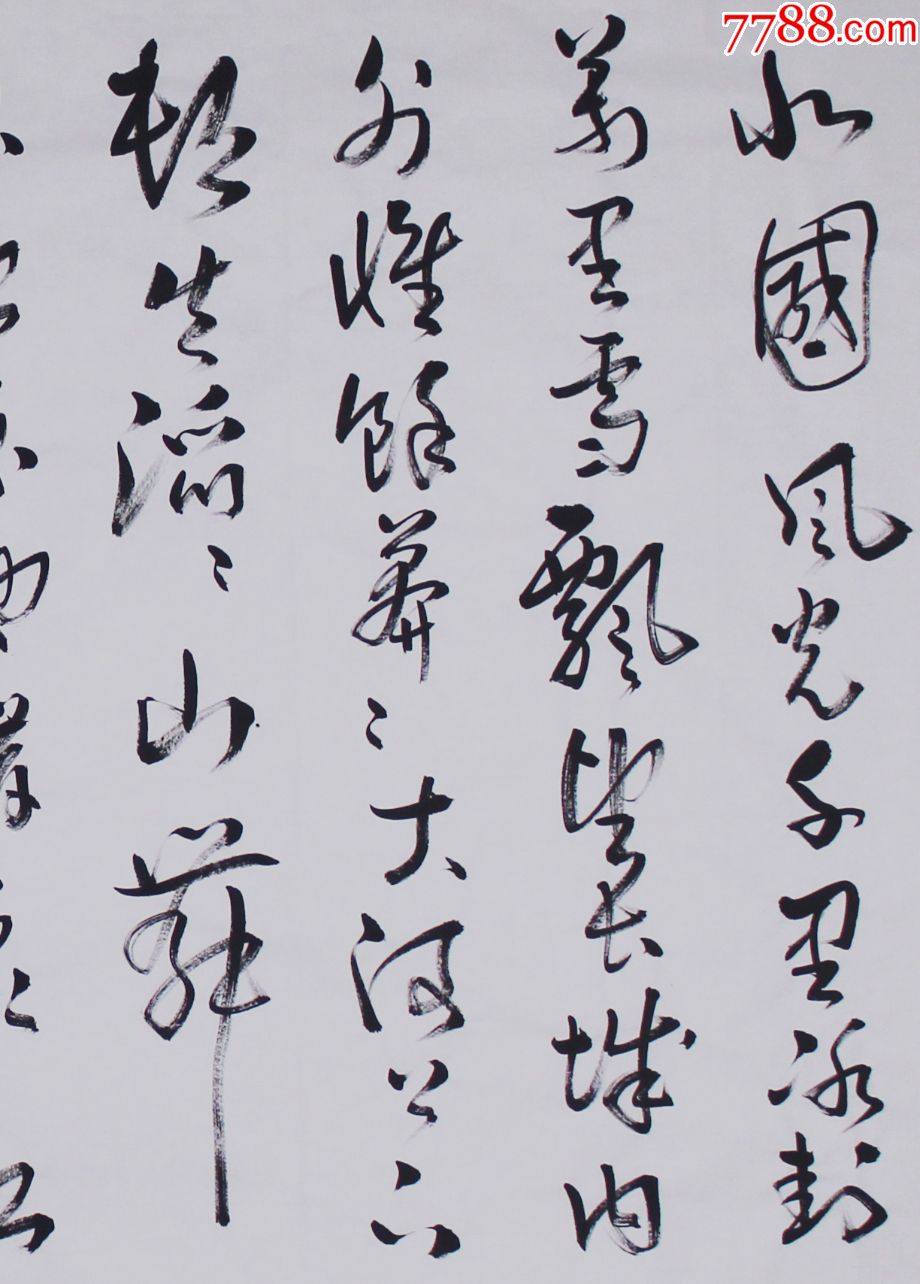 7788.com
北國風光千里冰封
萬里雪飄望長城内
外惟餘莽〻大河上下
頓失滔〻山舞